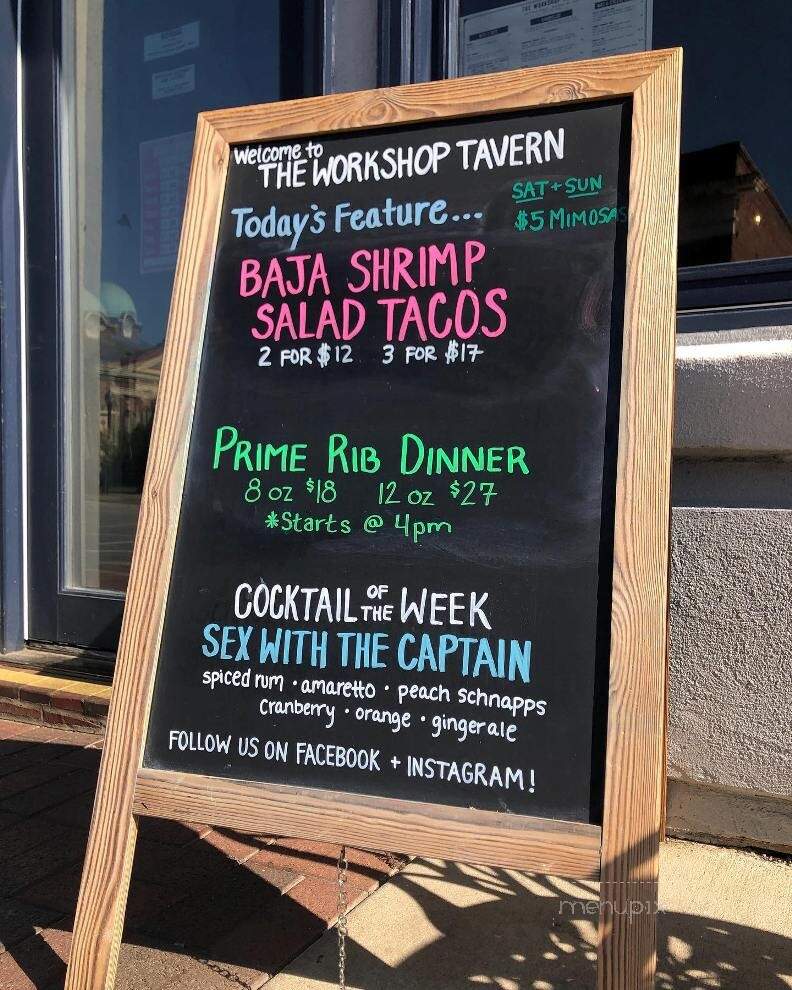 Welcome to
THE WORKSHOP TAVERN
SAT + SUN
$5 MIMOSAS
Today's Feature...
BAJA SHRIMP
SALAD TACOS
2 FOR $12 3 FOR $17
PRIME RIB DINNER
8 oz $18 12 oz $27
*Starts @ 4pm
COCKTAIL OF THE WEEK
SEX WITH THE CAPTAIN
spiced rum · amaretto · peach schnapps
cranberry · orange · gingerale
FOLLOW US ON FACEBOOK + INSTAGRAM!
menupix